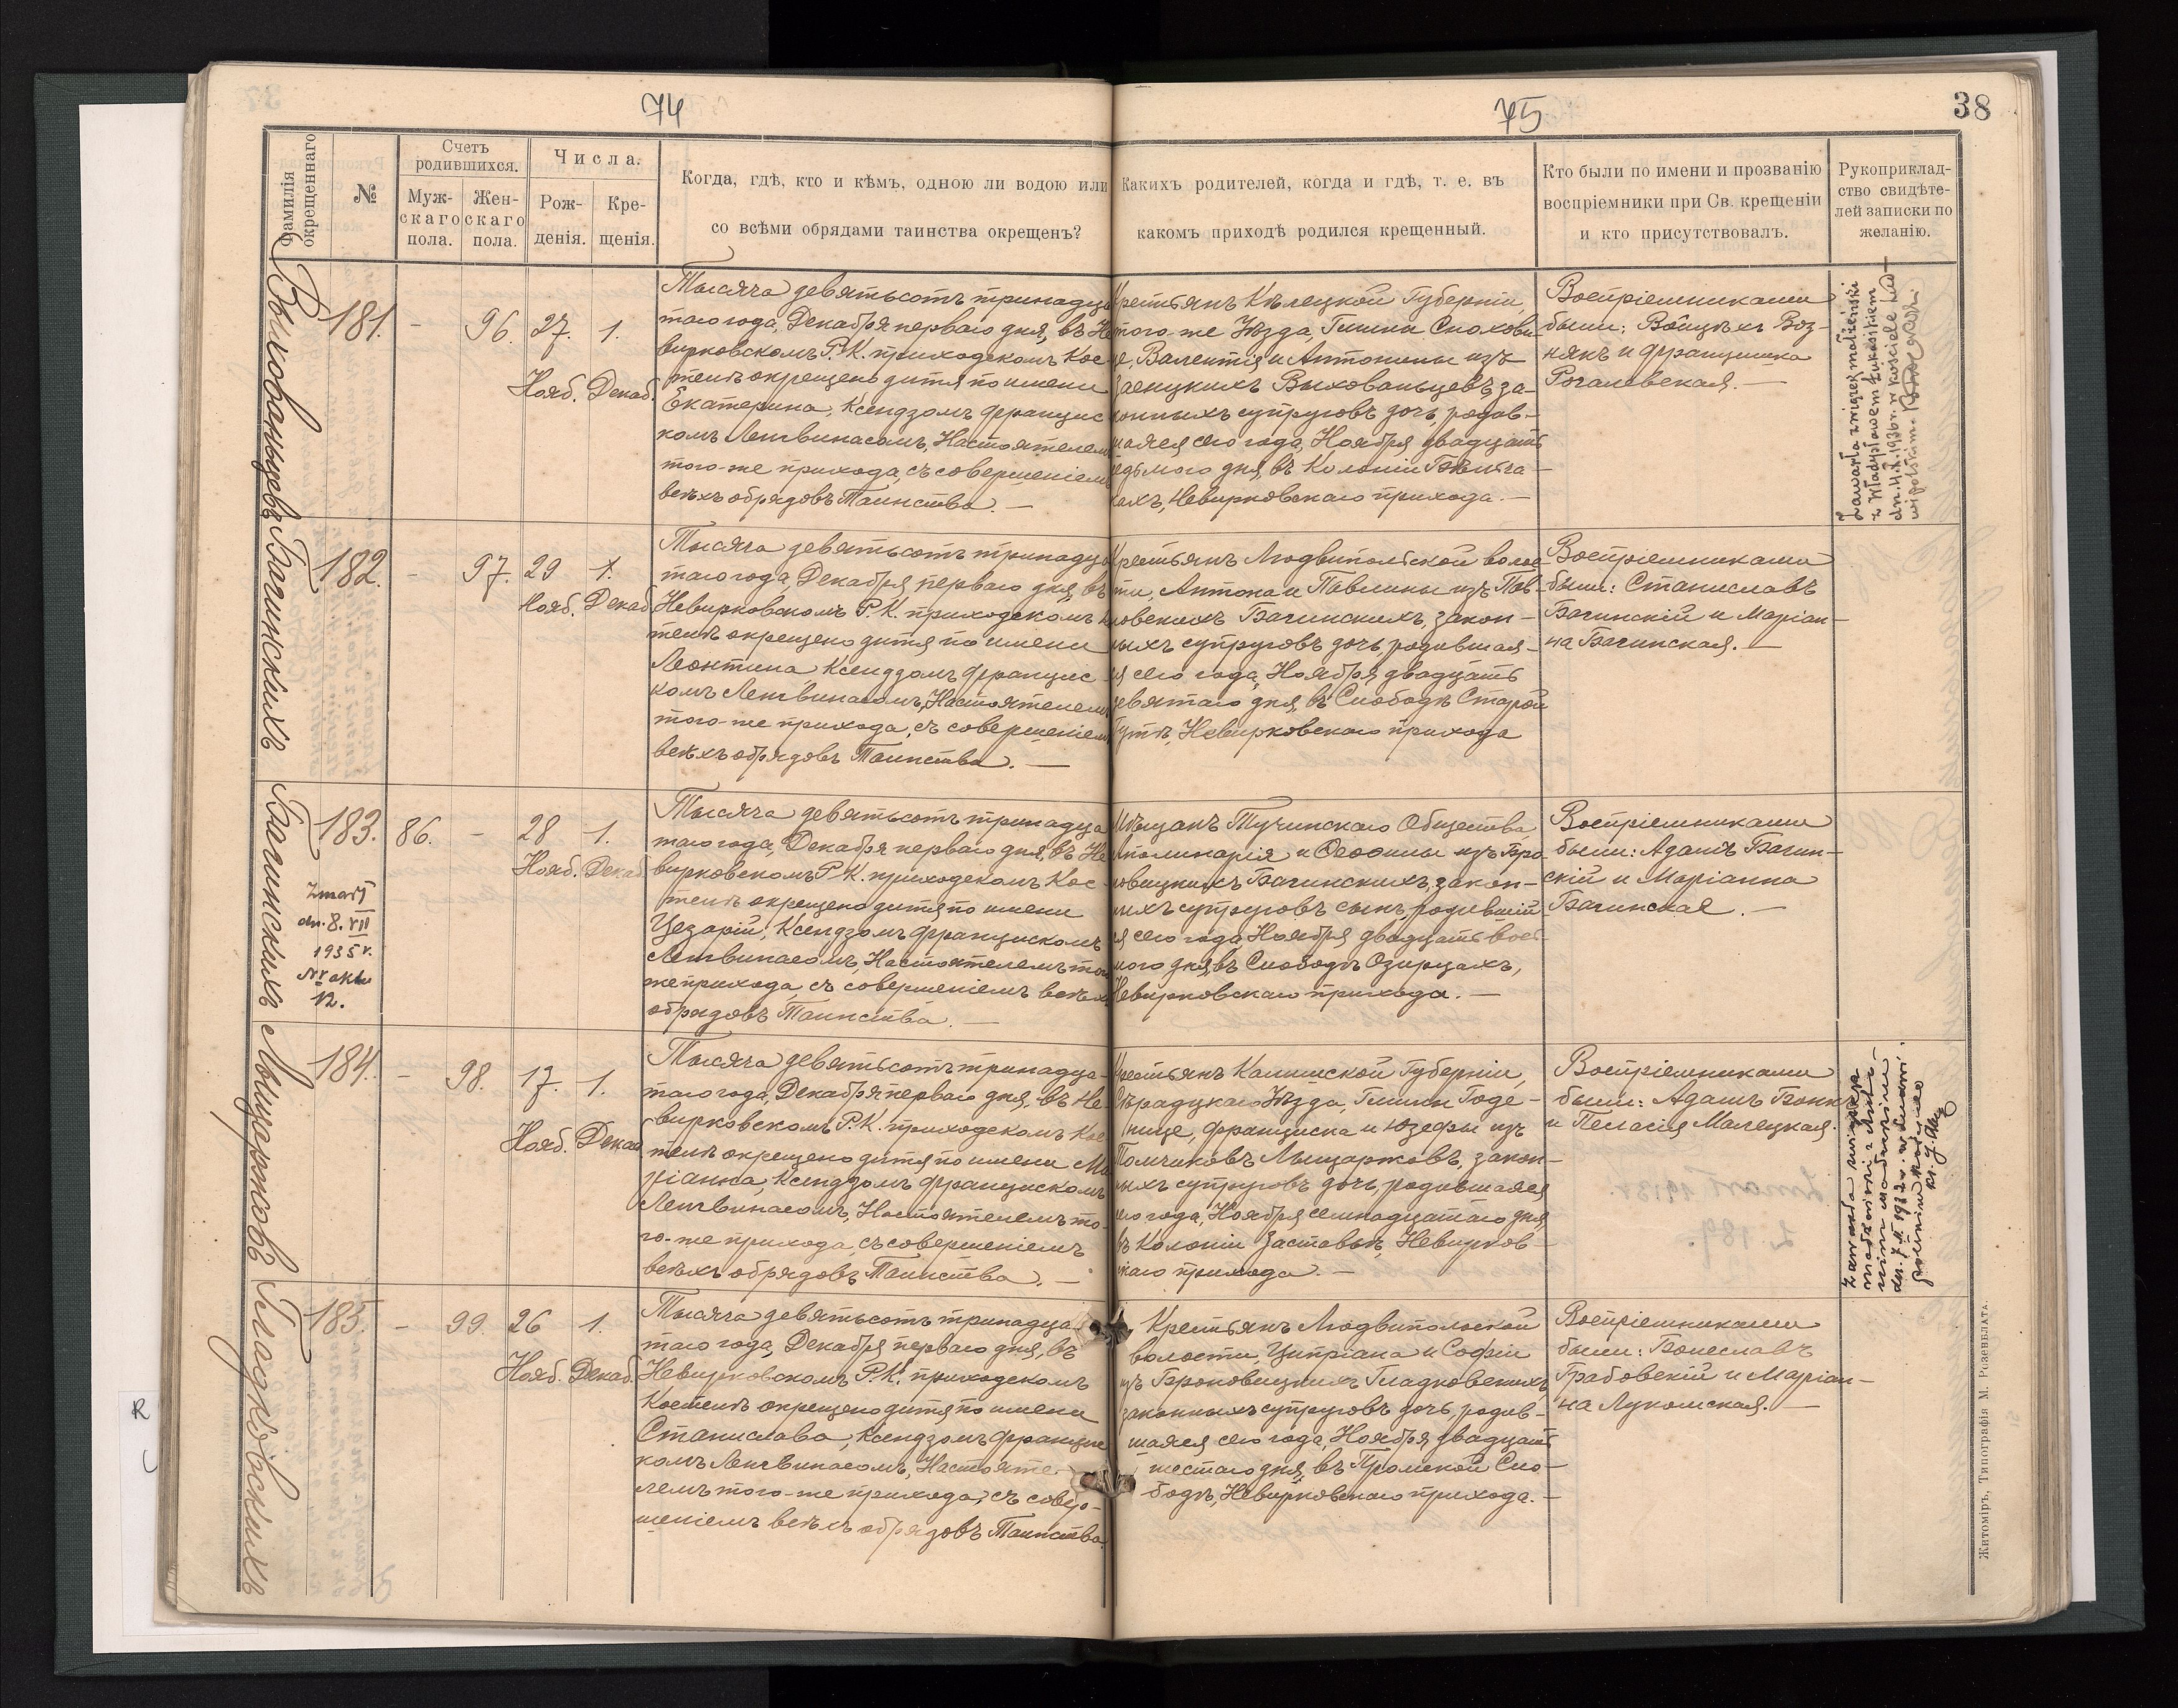 74
75
38
Фамилія окрещеннаго
№
Счетъ родившихся.
Муж-
скаго
пола.
Жен-
скаго
пола.
Числа.
Рож-
денія.
Кре-
щенія.
Когда, гдѣ, кто и кѣмъ, одною ли водою или
со всѣми обрядами таинства окрещенъ?
Какихъ родителей, когда и гдѣ, т. е. въ
какомъ приходѣ родился крещенный.
Кто были по имени и прозванію
воспріемники при Св. крещеніи
и кто присутствовалъ.
Рукоприклад-
ство свидѣте-
лей записки по
желанію.
Выхованьцевъ
181.
-
96.
27.
1.
Нояб.
Декаб.
Тысяча девятьсотъ тринадца
таго года, Декабря перваго дня, въ Не
вирковскомъ Р.К. приходскомъ Кос
телѣ окрещено дитя по имени
Екатерина, Ксендзомъ Францис
комъ Ленгвинасомъ, Настоятелемъ
того-же прихода, съ совершеніемъ
всѣхъ обрядовъ Таинства. —
Крестьянъ Кѣлецкой Губерніи,
того же Уѣзда, Гмины
Валентія и Антонины изъ
Выхованьцевъ за-
конныхъ супруговъ дочь, родив-
шаяся сего года, Ноября двадцать
седьмого дня, въ Колоніи
Невирковскаго прихода. —
Воспріемниками
были: Войцѣхъ Воз-
някъ и Францишка
Рогалевская. —
Zawarła związek małżeński
z Władysławem Łukasikiem
dn. 1936 r. w kościele
Багинскихъ
182.
-
97.
29
1.
Нояб.
Декаб.
Тысяча девятьсотъ тринадца
таго года, Декабря перваго дня, въ
Невирковскомъ Р. К. приходскомъ К
телѣ окрещено дитя по имени
Леонтина Ксендзомъ Францис-
комъ Ленгвинасомъ, Настоятелемъ
того-же прихода, съ совершеніемъ
всѣхъ обрядовъ Таинства. —
Крестьянъ Людвипольской волос
ти, Антона и Павлины изъ Пав-
ловскихъ Багинскихъ, закон-
ныхъ супруговъ дочь, родившая-
ся сего года, Ноября двадцать
девятаго дня, въ Слободѣ Старой
Гутѣ, Невирковскаго прихода
Воспріемниками
были: Станиславъ
Багинскій и Маріан-
на Багинская. —
Багинскихъ
183.
86.
-
28
1.
Нояб.
Декаб.
Zmarł
dn. 8. VII
1935 r.
Nr aktu
12.
Тысяча девятьсотъ тринадца
таго года, Декабря перваго дня, въ Не
вирковскомъ Р. К. приходскомъ Кос-
телѣ окрещено дитя по имени
Цезарій, Ксендзомъ Францискомъ
Ленгвинасомъ, Настоятелемъ того
же прихода, съ совершеніемъ всѣхъ
обрядовъ Таинства. —
Мѣщанъ Тучинскаго Общества,
Аполинарія и изъ Бро-
новицкихъ Багинскихъ, закон-
ныхъ супруговъ сынъ, родившій-
ся сего года, Ноября двадцать вось-
мого дня, въ Слободѣ Озирцахъ,
Невирковскаго прихода. —
Воспріемниками
были: Адамъ Багин-
скій и Маріанна
Багинская. —
Лыщарковъ
184.
-
98.
17.
1.
Нояб.
Декаб.
Тысяча девятьсотъ тринадца-
таго года, Декабря перваго дня, въ Не-
вирковскомъ Р.К. приходскомъ Кос
телѣ окрещено дитя по имени Ма
ріанна, Ксендзомъ Францискомъ
Ленгвинасомъ, Настоятелемъ то-
го-же прихода, съ совершеніемъ
всѣхъ обрядовъ Таинства. —
Крестьянъ Калишской Губерніи,
Сѣрадзкаго Уѣзда, Гмины Годе-
нице, Франциска и Юзефы изъ
Томчиковъ Лыщарковъ, закон-
ныхъ супруговъ дочь, родившаяся
сего года, Ноября семнадцатаго дня,
въ Колоніи Заставьѣ, Невирков-
скаго прихода. —
Воспріемниками
были: Адамъ Бонк
и Пелагія Малецкая.
Zawarła związek
Гладковскихъ
185.
-
99
26
1.
Нояб.
Декаб.
Тысяча девятьсотъ тринадца
таго года, Декабря перваго дня, въ
Невирковскомъ Р.К. приходскомъ
Костелѣ окрещено дитя по имени
Станислава, Ксендзомъ Францис
комъ Ленгвинасомъ, Настояте-
лемъ того-же прихода, съ совер-
шеніемъ всѣхъ обрядовъ Таинства.
Крестьянъ Людвипольской
волости, Ципріана и Софіи
изъ Броновицкихъ Гладковскихъ
законныхъ супруговъ дочь, родив-
шаяся сего года, Ноября двадцать
шестаго дня, въ Сло-
бодѣ, Невирковскаго прихода. —
Воспріемниками
были: Болеславъ
Грабовскій и Маріан-
на Лукомская. —
Житоміръ, Типографія М. Розенблата.
R